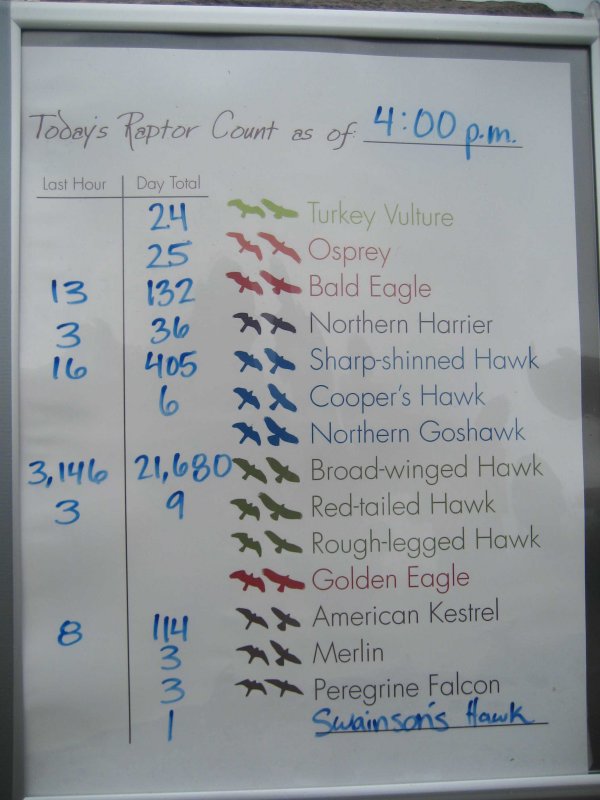 Today's Raptor Count as of: 4:00 p.m.
Last Hour Day Total
24 Turkey Vulture
25 Osprey
13 132 Bald Eagle
3 36 Northern Harrier
16 405 Sharp-shinned Hawk
6 Cooper's Hawk
Northern Goshawk
3,146 21,680 Broad-winged Hawk
3 9 Red-tailed Hawk
Rough-legged Hawk
Golden Eagle
8 114 American Kestrel
3 Merlin
3 Peregrine Falcon
1 Swainson's Hawk